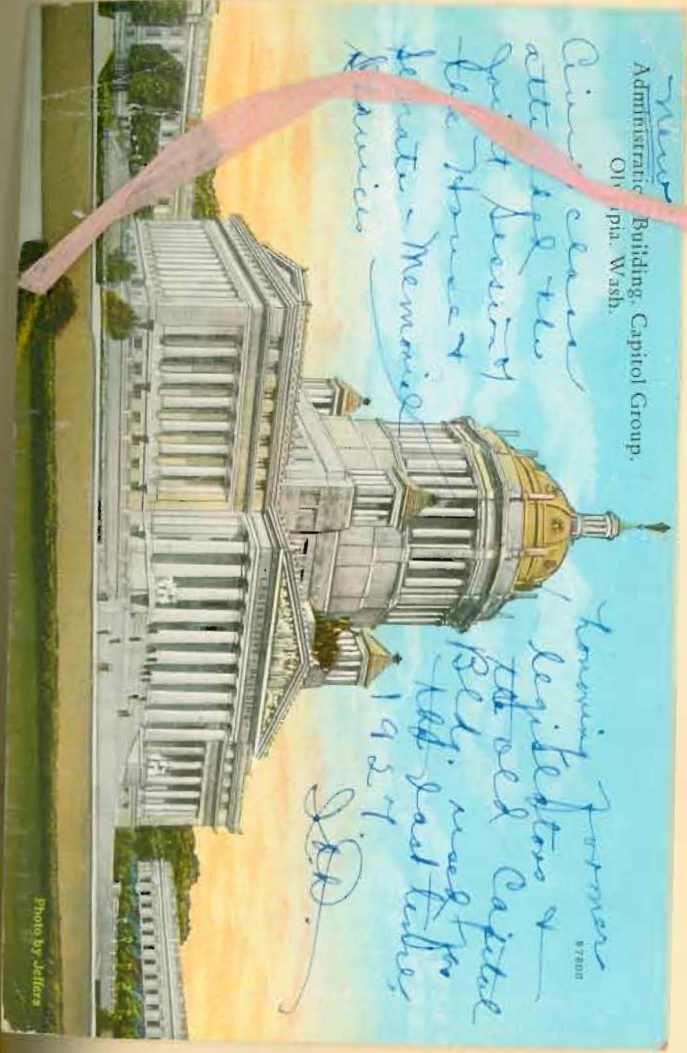 New
Administratio Building, Capitol Group,
Ol pia, Wash.
Civi class
atte ed the
Joint Session of
the House &
Senate - Memorial
Services
honoring former
legislators &
the old Capitol
Bld. used for
the last time,
1927
57800
Photo by Jeffers